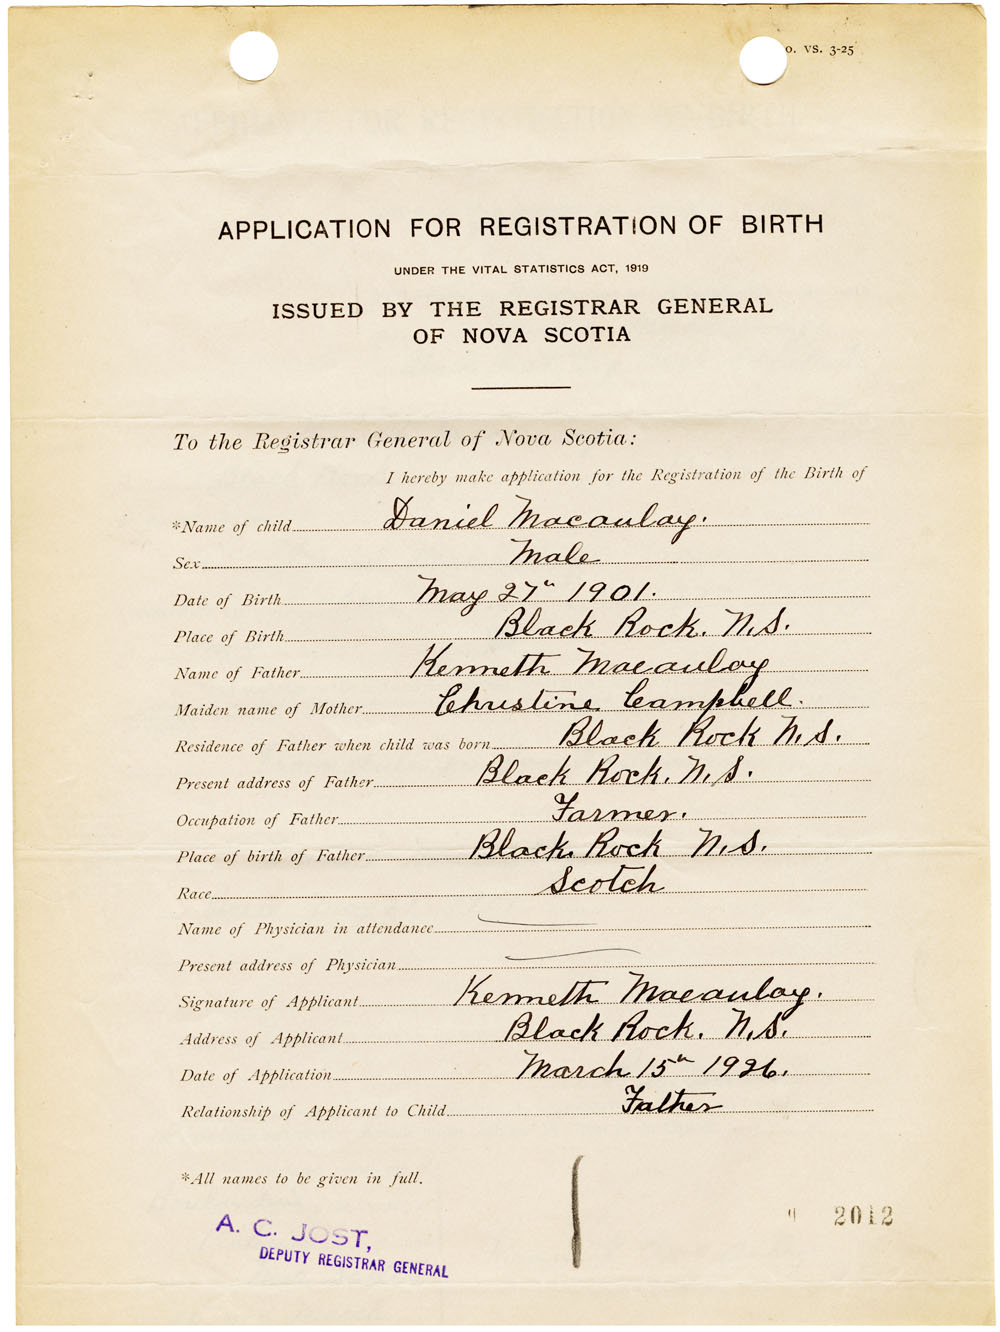 o. VS. 3-25
APPLICATION FOR REGISTRATION OF BIRTH
UNDER THE VITAL STATISTICS ACT, 1919
ISSUED BY THE REGISTRAR GENERAL
OF NOVA SCOTIA
To the Registrar General of Nova Scotia:
I hereby make application for the Registration of the Birth of
*Name of child Daniel Macaulay.
Sex Male
Date of Birth May 27th 1901.
Place of Birth Black Rock. N.S.
Name of Father Kenneth Macaulay
Maiden name of Mother Christine Campbell.
Residence of Father when child was born Black Rock N.S.
Present address of Father Black Rock. N.S.
Occupation of Father Farmer.
Place of birth of Father Black Rock N.S.
Race Scotch
Name of Physician in attendance
Present address of Physician
Signature of Applicant Kenneth Macaulay.
Address of Applicant Black Rock. N.S.
Date of Application March 15th 1926.
Relationship of Applicant to Child Father
*All names to be given in full.
2012
A. C. JOST,
DEPUTY REGISTRAR GENERAL